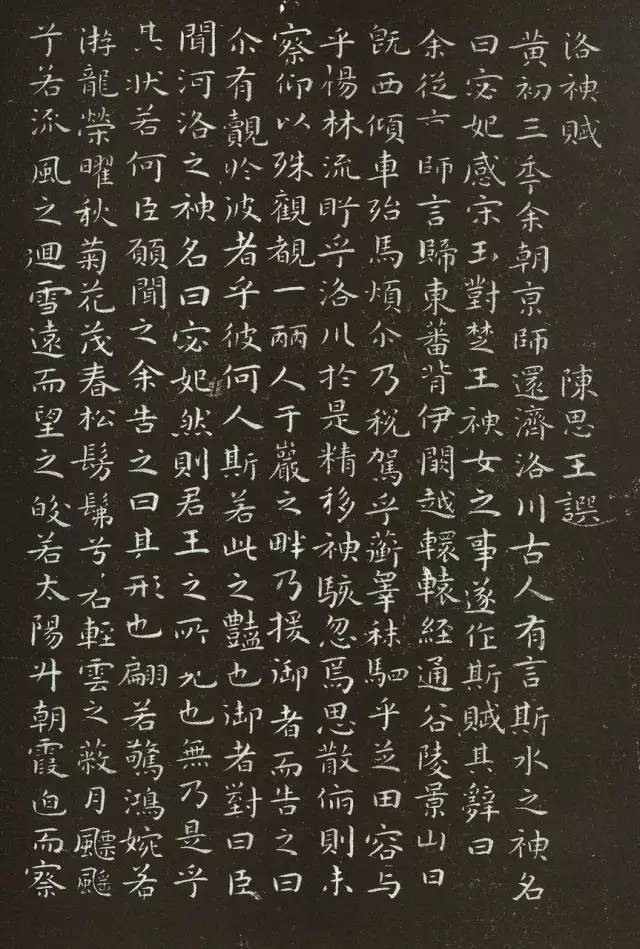 洛神賦 陳思王譔
黄初三年余朝京師還濟洛川古人有言斯水之神名
曰宓妃感宋玉對楚王神女之事遂作斯賦其辭曰
余從京師言歸東蕃背伊闕越轘轅經通谷陵景山日
旣西傾車殆馬煩尒乃稅駕乎蘅皋秣駟乎芝田容与
乎楊林流眄乎洛川於是精移神駭忽焉思散俯則未
察仰以殊觀覩一麗人于巖之畔乃援御者而告之曰
尒有覿於彼者乎彼何人斯若此之豔也御者對曰臣
聞河洛之神名曰宓妃然則君王之所見也無乃是乎
其状若何臣願聞之余告之曰其形也翩若驚鴻婉若
游龍榮曜秋菊花茂春松髣髴兮若輕雲之蔽月飄颻
兮若流風之迴雪遠而望之皎若太陽升朝霞迫而察